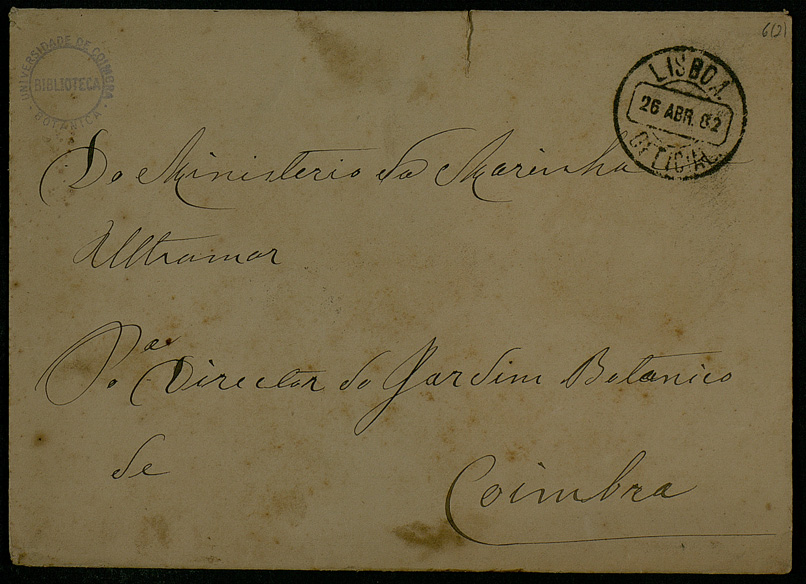 6(2)
UNIVERSIDADE DE COIMBRA
BIBLIOTECA
BOTANICA
LISBOA
26 ABR. 82
OFFICIAL
Do Ministerio da Marinha
Ultramar
Director do Jardim Botanico
de
Coimbra